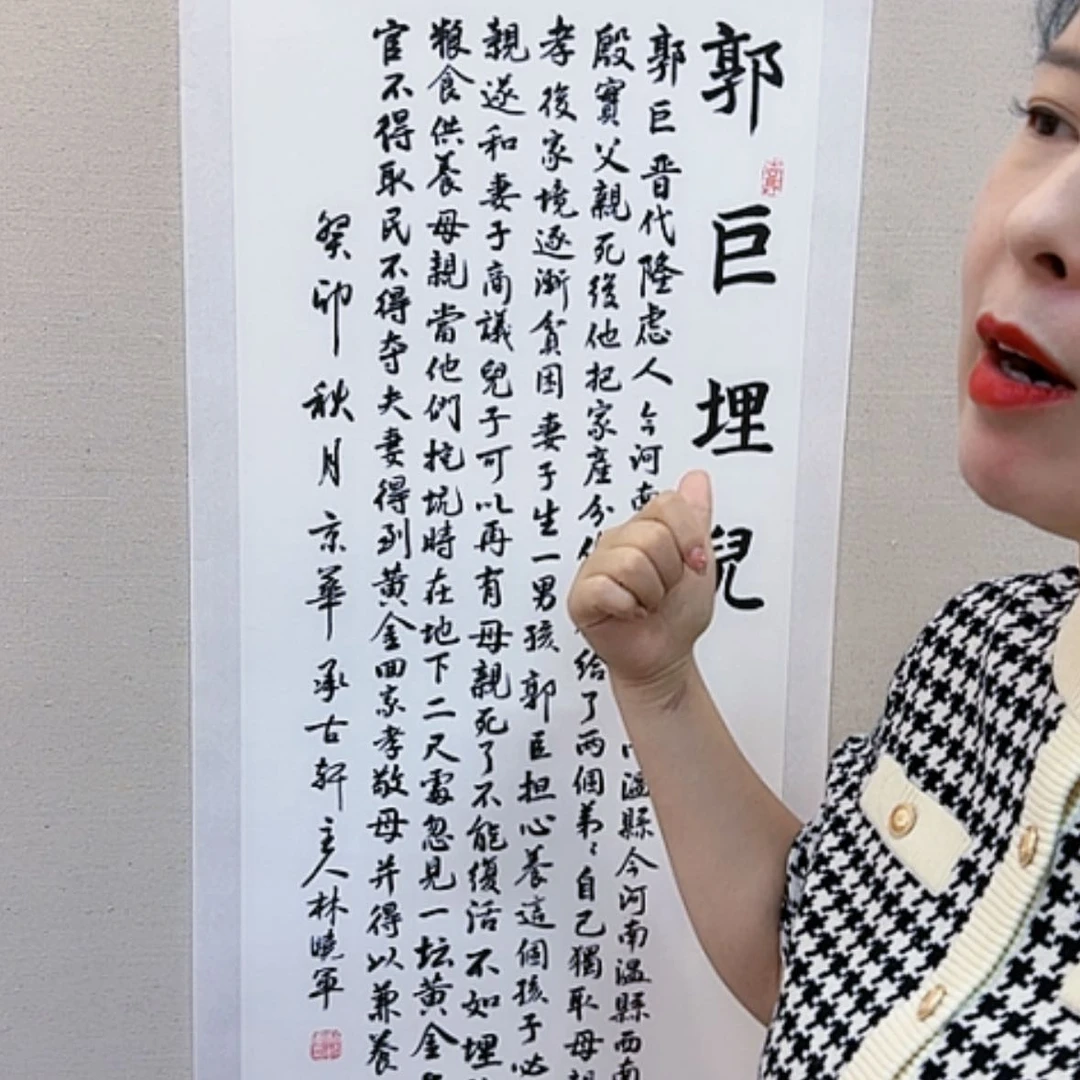 郭巨埋兒
郭巨晋代隆慮人今河南温縣今河南温縣西南
殷實父親死後他把家産分給了兩個弟弟自己獨取母親
孝後家境逐漸貧困妻子生一男孩郭巨担心養這個孩子必
親遂和妻子商議兒子可以再有母親死了不能復活不如埋
粮食供養母親當他們挖坑時在地下二尺處忽見一坛黄金
官不得取民不得夺夫妻得到黄金回家孝敬母并得以兼養
癸卯秋月京華承古轩主人林曉軍